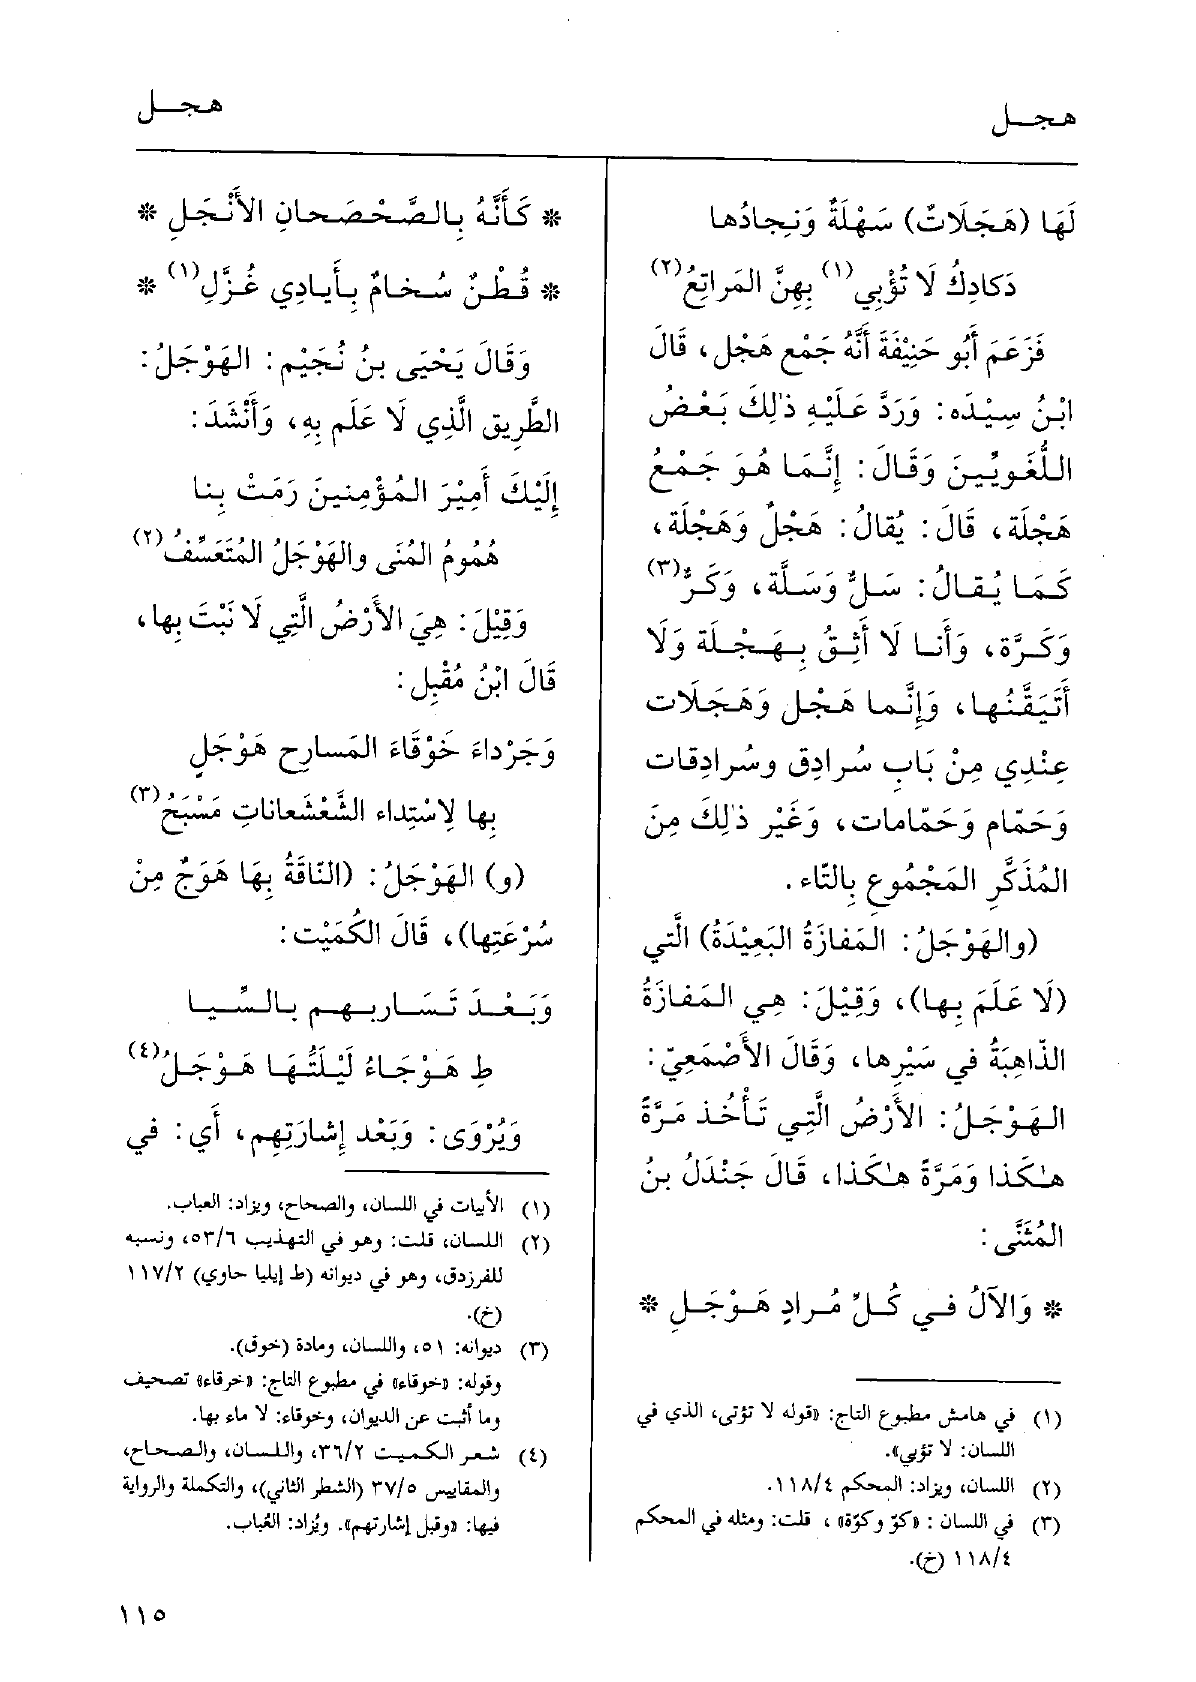 هجل
هجل
لَهَا (هَجَلَاتٌ) سَهْلَةٌ وَنِجادُها
دَكادِكُ لَا تُؤْبِي(١) بِهِنَّ المَراتِعُ(٢)
فَزَعَمَ أَبُو حَنِيفَةَ أَنَّهُ جَمْع هَجْل، قَالَ
ابْنُ سِيْدَه: وَرَدَّ عَلَيْهِ ذٰلِكَ بَعْضُ
اللُّغَوِيِّينَ وَقَالَ: إِنَّمَا هُوَ جَمْعُ
هَجْلَة، قَالَ: يُقالُ: هَجْلٌ وَهَجْلَة،
كَمَا يُقالُ: سَلٌّ وَسَلَّة، وَكَرٌّ(٣)
وَكَرَّة، وَأَنا لَا أَثِقُ بِهَجْلَة وَلَا
أَتَيَقَّنُها، وَإِنَّما هَجْل وَهَجَلَات
عِنْدِي مِنْ بَابِ سُرادِق وسُرادِقات
وَحَمَّام وَحَمَّامات، وَغَيْر ذٰلِكَ مِنَ
المُذَكَّرِ المَجْمُوعِ بِالتّاء.
(والهَوْجَلُ: المَفازَةُ البَعِيْدَةُ) الَّتي
(لَا عَلَمَ بِها)، وَقِيْلَ: هِي المَفازَةُ
الذّاهِبَةُ في سَيْرِها، وَقَالَ الأَصْمَعِيّ:
الهَوْجَلُ: الأَرْضُ الَّتِي تَأْخُذ مَرَّةً
هٰكَذا وَمَرَّةً هٰكَذا، قَالَ جَنْدَلُ بنُ
المُثَنَّى:
* وَالآلُ في كُلِّ مُرادٍ هَوْجَلِ *
(١) في هامش مطبوع التاج: «قوله لا تؤتى، الذي في
اللسان: لا تؤبي».
(٢) اللسان، ويزاد: المحكم ١١٨/٤.
(٣) في اللسان: «كوّ وكوّة»، قلت: ومثله في المحكم
١١٨/٤ (خ).
* كَأَنَّهُ بِالصَّحْصَحانِ الأَنْجَلِ *
* قُطْنٌ سُخامٌ بِأَيادِي غُزَّلِ(١) *
وَقَالَ يَحْيَى بنُ نُجَيْم: الهَوْجَلُ:
الطَّرِيق الَّذِي لَا عَلَم بِهِ، وَأَنْشَدَ:
إِلَيْكَ أَمِيْرَ المُؤْمِنِينَ رَمَتْ بِنا
هُمُومُ المُنَى والهَوْجَلُ المُتَعَسَّفُ(٢)
وَقِيْلَ: هِيَ الأَرْضُ الَّتِي لَا نَبْتَ بِها،
قَالَ ابْنُ مُقْبِل:
وَجَرْداءَ خَوْقَاءَ المَسارِحِ هَوْجَلٍ
بِها لِاسْتِداء الشَّعْشَعاناتِ مَسْبَحُ(٣)
(و) الهَوْجَلُ: (النّاقَةُ بِهَا هَوَجٌ مِنْ
سُرْعَتِها)، قَالَ الكُمَيْت:
وَبَعْدَ تَسَارِيهِم بالسِّيا
طِ هَوْجَاءُ لَيْلَتُهَا هَوْجَلُ(٤)
وَيُرْوَى: وَبَعْد إِشارَتِهِم، أَي: في
(١) الأبيات في اللسان، والصحاح، ويزاد: العباب.
(٢) اللسان، قلت: وهو في التهذيب ٥٣/٦، ونسبه
للفرزدق، وهو في ديوانه (ط إيليا حاوي) ١١٧/٢
(خ).
(٣) ديوانه: ٥١، واللسان، ومادة (خوق).
وقوله: «خوقاء» في مطبوع التاج: «خرقاء» تصحيف
وما أثبت عن الديوان، وخوقاء: لا ماء بها.
(٤) شعر الكميت ٣٦/٢، واللسان، والصحاح،
والمقاييس ٣٧/٥ (الشطر الثاني)، والتكملة والرواية
فيها: «وقبل إشارتهم». ويُزاد: العُباب.
١١٥